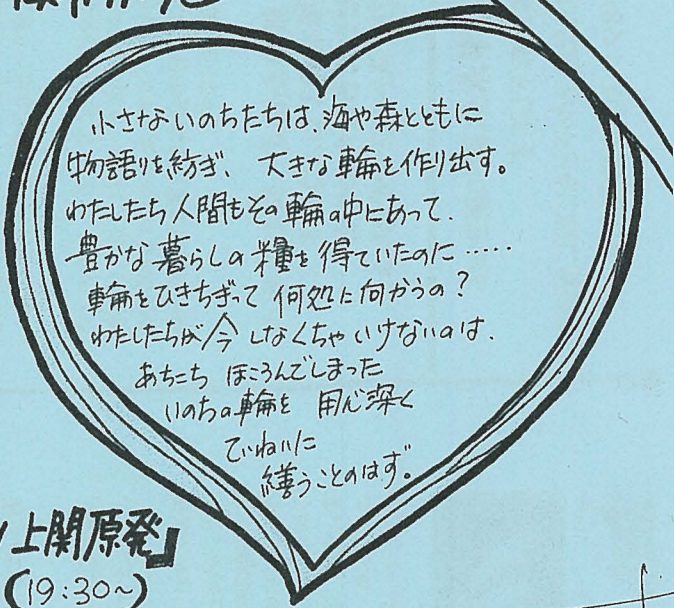 小さないのちたちは、海や森とともに
物語りを紡ぎ、大きな輪を作り出す。
わたしたち人間もその輪の中にあって、
豊かな暮らしの糧を得ていたのに……
輪をひきちぎって何処に向かうの？
わたしたちが今しなくちゃいけないのは、
あちこちほころんでしまった
いのちの輪を用心深く
ていねいに
繕うことのはず。
上関原発』
(19:30〜)